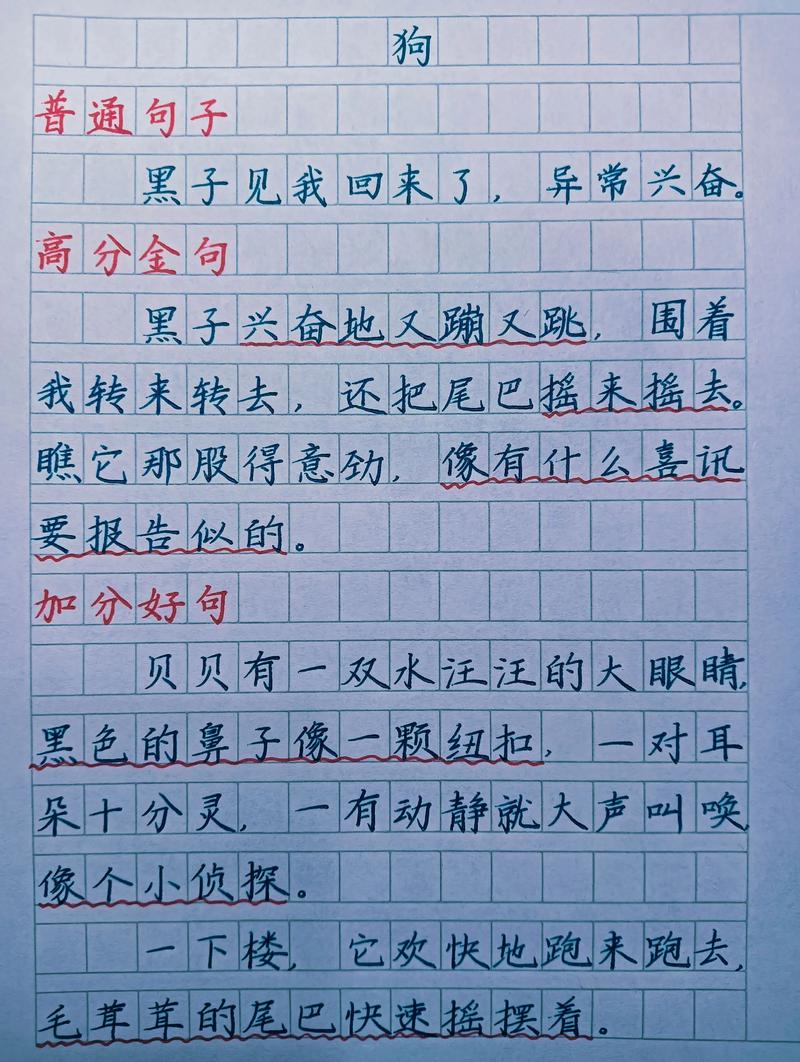 狗
普通句子
黑子见我回来了，异常兴奋。
高分金句
黑子兴奋地又蹦又跳，围着
我转来转去，还把尾巴摇来摇去。
瞧它那股得意劲，像有什么喜讯
要报告似的。
加分好句
贝贝有一双水汪汪的大眼睛，
黑色的鼻子像一颗纽扣，一对耳
朵十分灵，一有动静就大声叫唤，
像个小侦探。
一下楼，它欢快地跑来跑去，
毛茸茸的尾巴快速摇摆着。